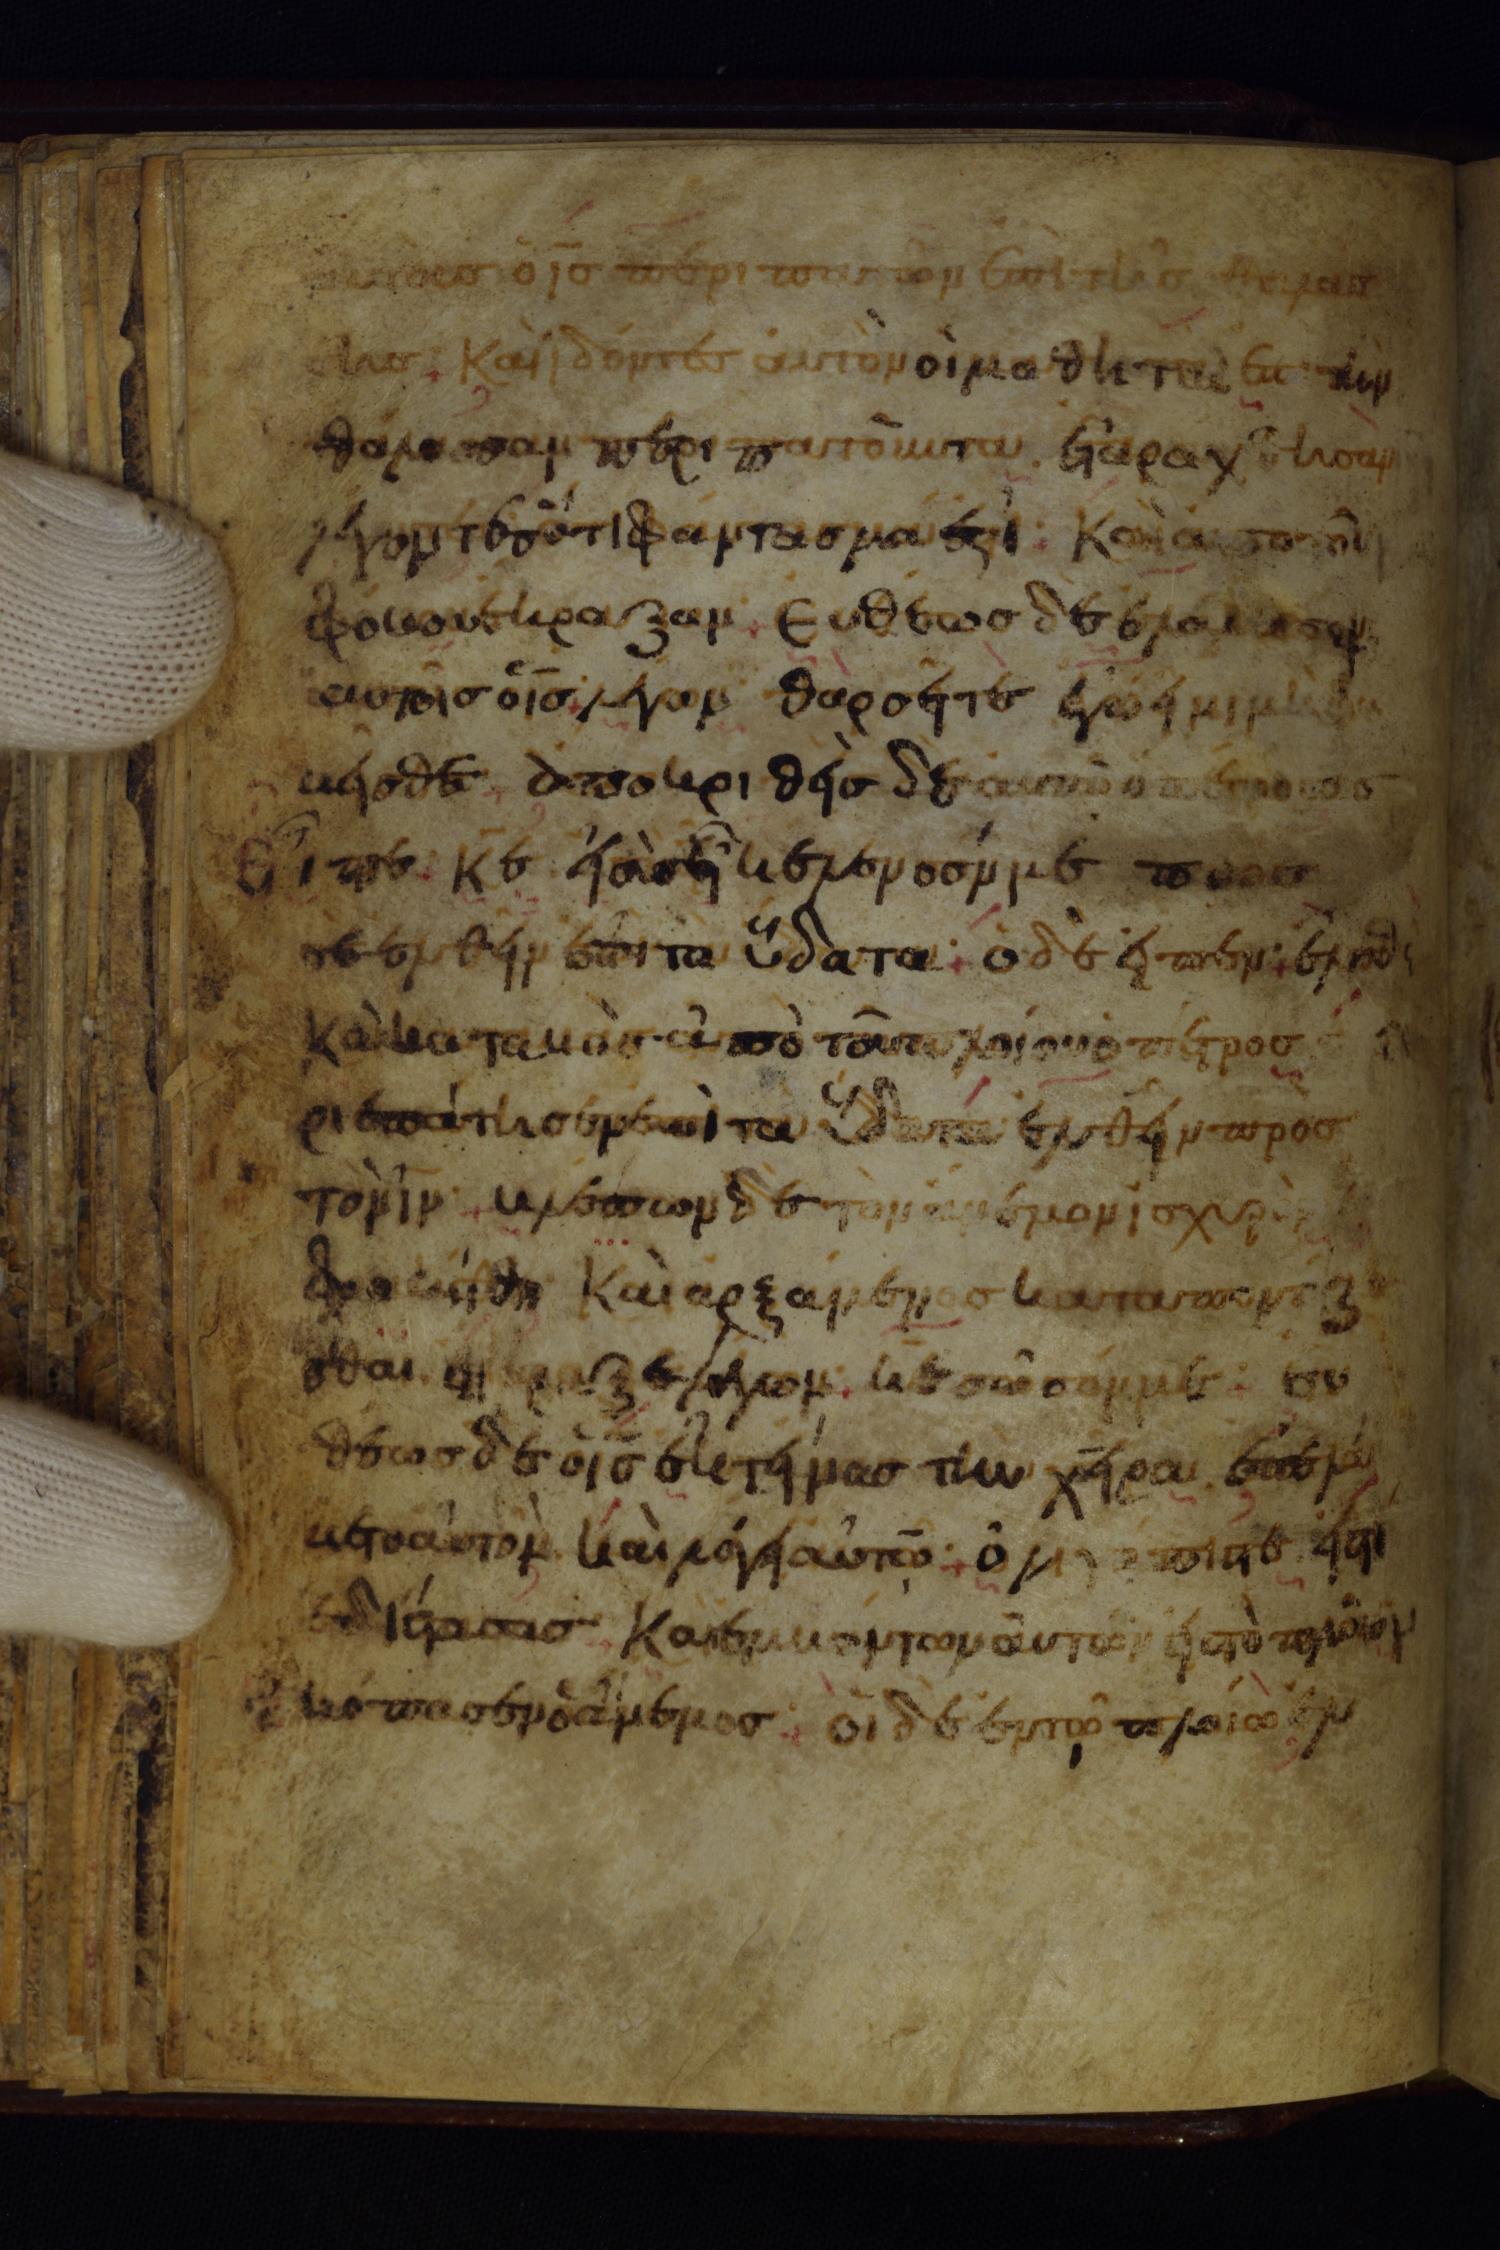 αυτους ὁ ι̅ς̅ περιπατῶν ἐπὶ τῆς θαλας
σης· Καὶ ἰδόντες ἀυτὸν ὁι μαθηταὶ ἐπι την
θάλασσαν περιπατοῦντα. ἐταράχθησαν
λέγοντες ὅτι φάντασμα ἐστὶ· Καὶ ἀπο τοῦ
φόβου ἔκραξαν· Ευθέωσ δὲ ἐλάλησεν
αυτοῖσ ὁ ι̅σ̅ λέγων· θαρσῆτε ἐγώ ήμι μὴ φο
βῆσθε· ἀποκριθὴσ δὲ αυτῶ ὁ πέτροσ
Εἶπε· κ̅ε̅ ἠ σὺ ἦ κέλευσόν με προσ
σε ελθῆν ἐπὶ τα ὕδατα· ὁ δὲ ἦπεν· ἐλθὲ
Καὶ καταβὰσ ἀπὸ τοῦ πλοίου ὁ πέτροσ
ριεπάτησεν ἐπὶ τα ὕδατα ἐλθῆν πρὸσ
τὸν ι̅ν̅· βλέπων δὲ τὸν ἄνεμον ἰσχυρὸν
φοβήθη Καὶ ἀρξάμενοσ καταποντίζε
σθαι ἔκραξε λέγων· κ̅ε̅ σῶσόν με· ευ
θέωσ δὲ ὁ ι̅σ̅ ἐκτήνασ τὴν χῆρα ἐπελά
βετο ἀυτοῦ καὶ λέγη ἀυτῶ· ὀλιγόπιστε ἠστι
εδίστασασ Καὶ ἐμβάντων ἀυτῶν ἠσ τὸ πλοῖον
ἐκόπασεν ὁ ἄνεμοσ· ὁι δὲ ἐν τῶ πλοίω ἐλ